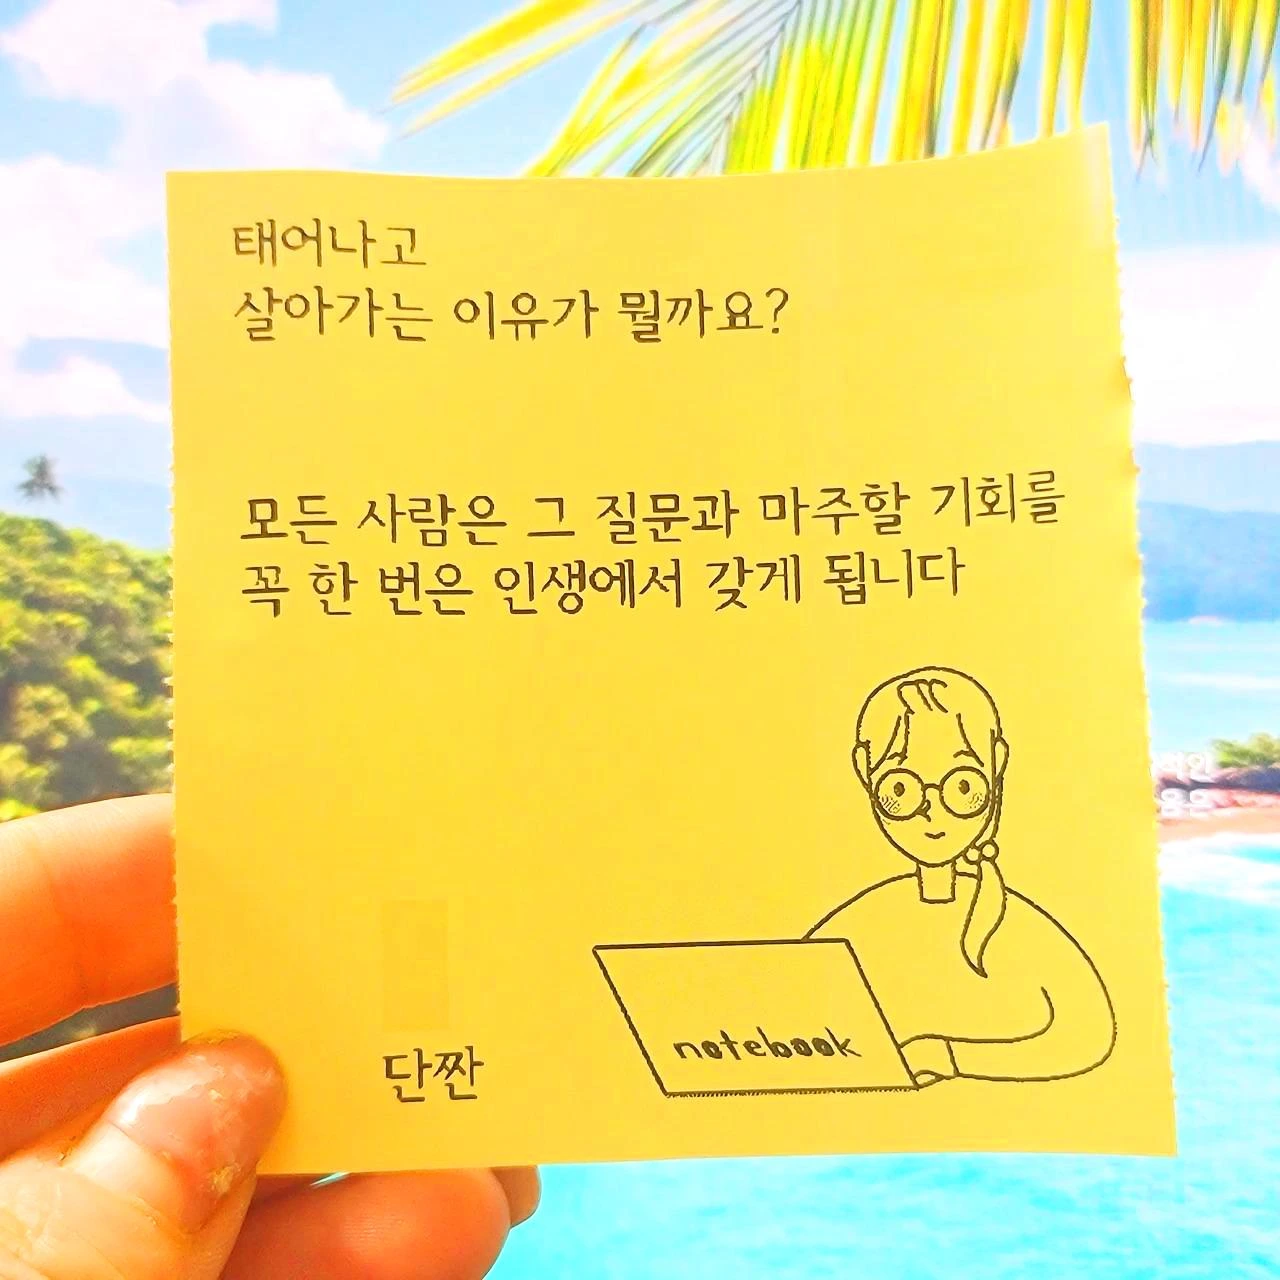 태어나고
살아가는 이유가 뭘까요?
모든 사람은 그 질문과 마주할 기회를
꼭 한 번은 인생에서 갖게 됩니다
notebook
단짠